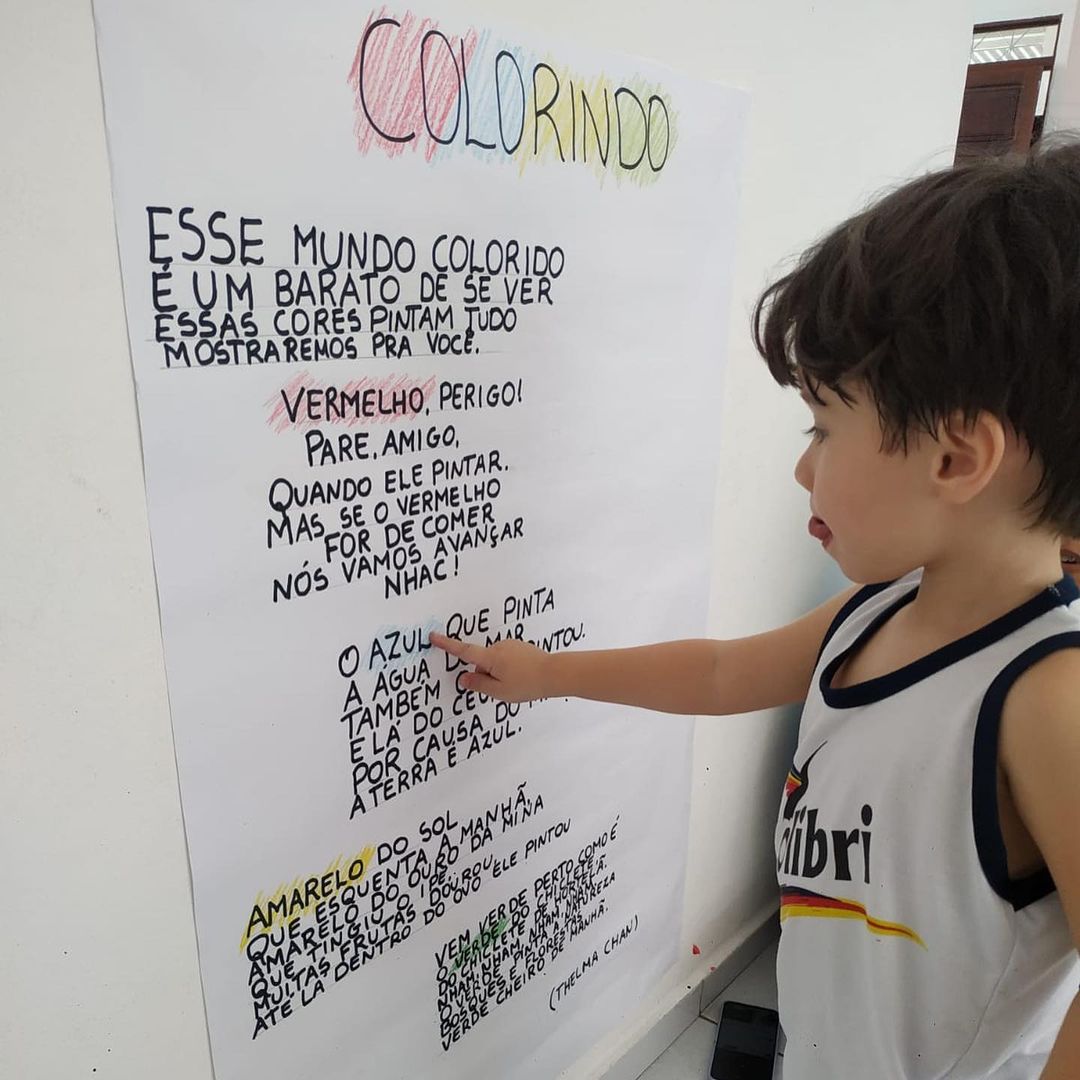 COLORINDO
ESSE MUNDO COLORIDO
É UM BARATO DE SE VER
ESSAS CORES PINTAM TUDO
MOSTRAREMOS PRA VOCÊ.
VERMELHO, PERIGO!
PARE, AMIGO,
QUANDO ELE PINTAR.
MAS SE O VERMELHO
FOR DE COMER
NÓS VAMOS AVANÇAR
NHAC!
O AZUL QUE PINTA
A ÁGUA DO MAR
TAMBÉM
E LÁ DO CÉU
POR CAUSA DO
A TERRA É AZUL.
AMARELO DO SOL
QUE ESQUENTA A MANHÃ,
AMARELO DO OURO DA MINA
QUE TINGIU O IPÊ,
MUITAS FRUTAS DOUROU,
ATÉ LÁ DENTRO DO OVO ELE PINTOU
VEM VERDE PERTO COMO É
O VERDE DO CHICLETE
DO CHICLETE DE HORTELÃ.
NHAM, NHAM, NHAM, NHAM
O VERDE PINTA A NATUREZA
BOSQUES E FLORESTAS
VERDE CHEIRO DE MANHÃ.
(THELMA CHAN)
olibri